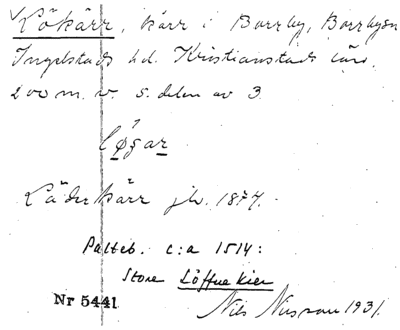 Lökärr, kärr i Borrby, Borrbysn
Ingelstads hd. Kristianstads län.
200 m. v. s. delen av 3.
løgar
Läderkärr jb. 1874.
Palteb. c:a 1514:
Store Löffue kier
Nr 5441
Nils Nilsson 1931.